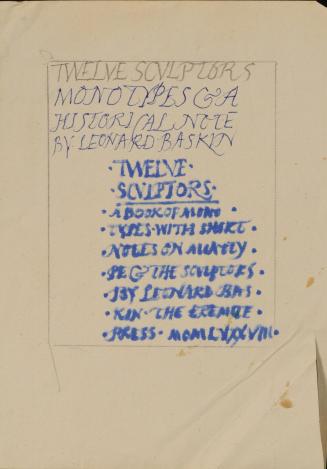 TWELVE SCULPTORS
MONOTYPES & A
HISTORICAL NOTE
BY LEONARD BASKIN
·TWELVE·
·SCULPTORS·
·A BOOK OF MONO·
·TYPES·WITH SHORT·
·NOTES ON
·PE & THE SCULPTORS·
·BY LEONARD BAS·
·KIN·THE EREMITE·
·PRESS·MCMLXXXVIII·